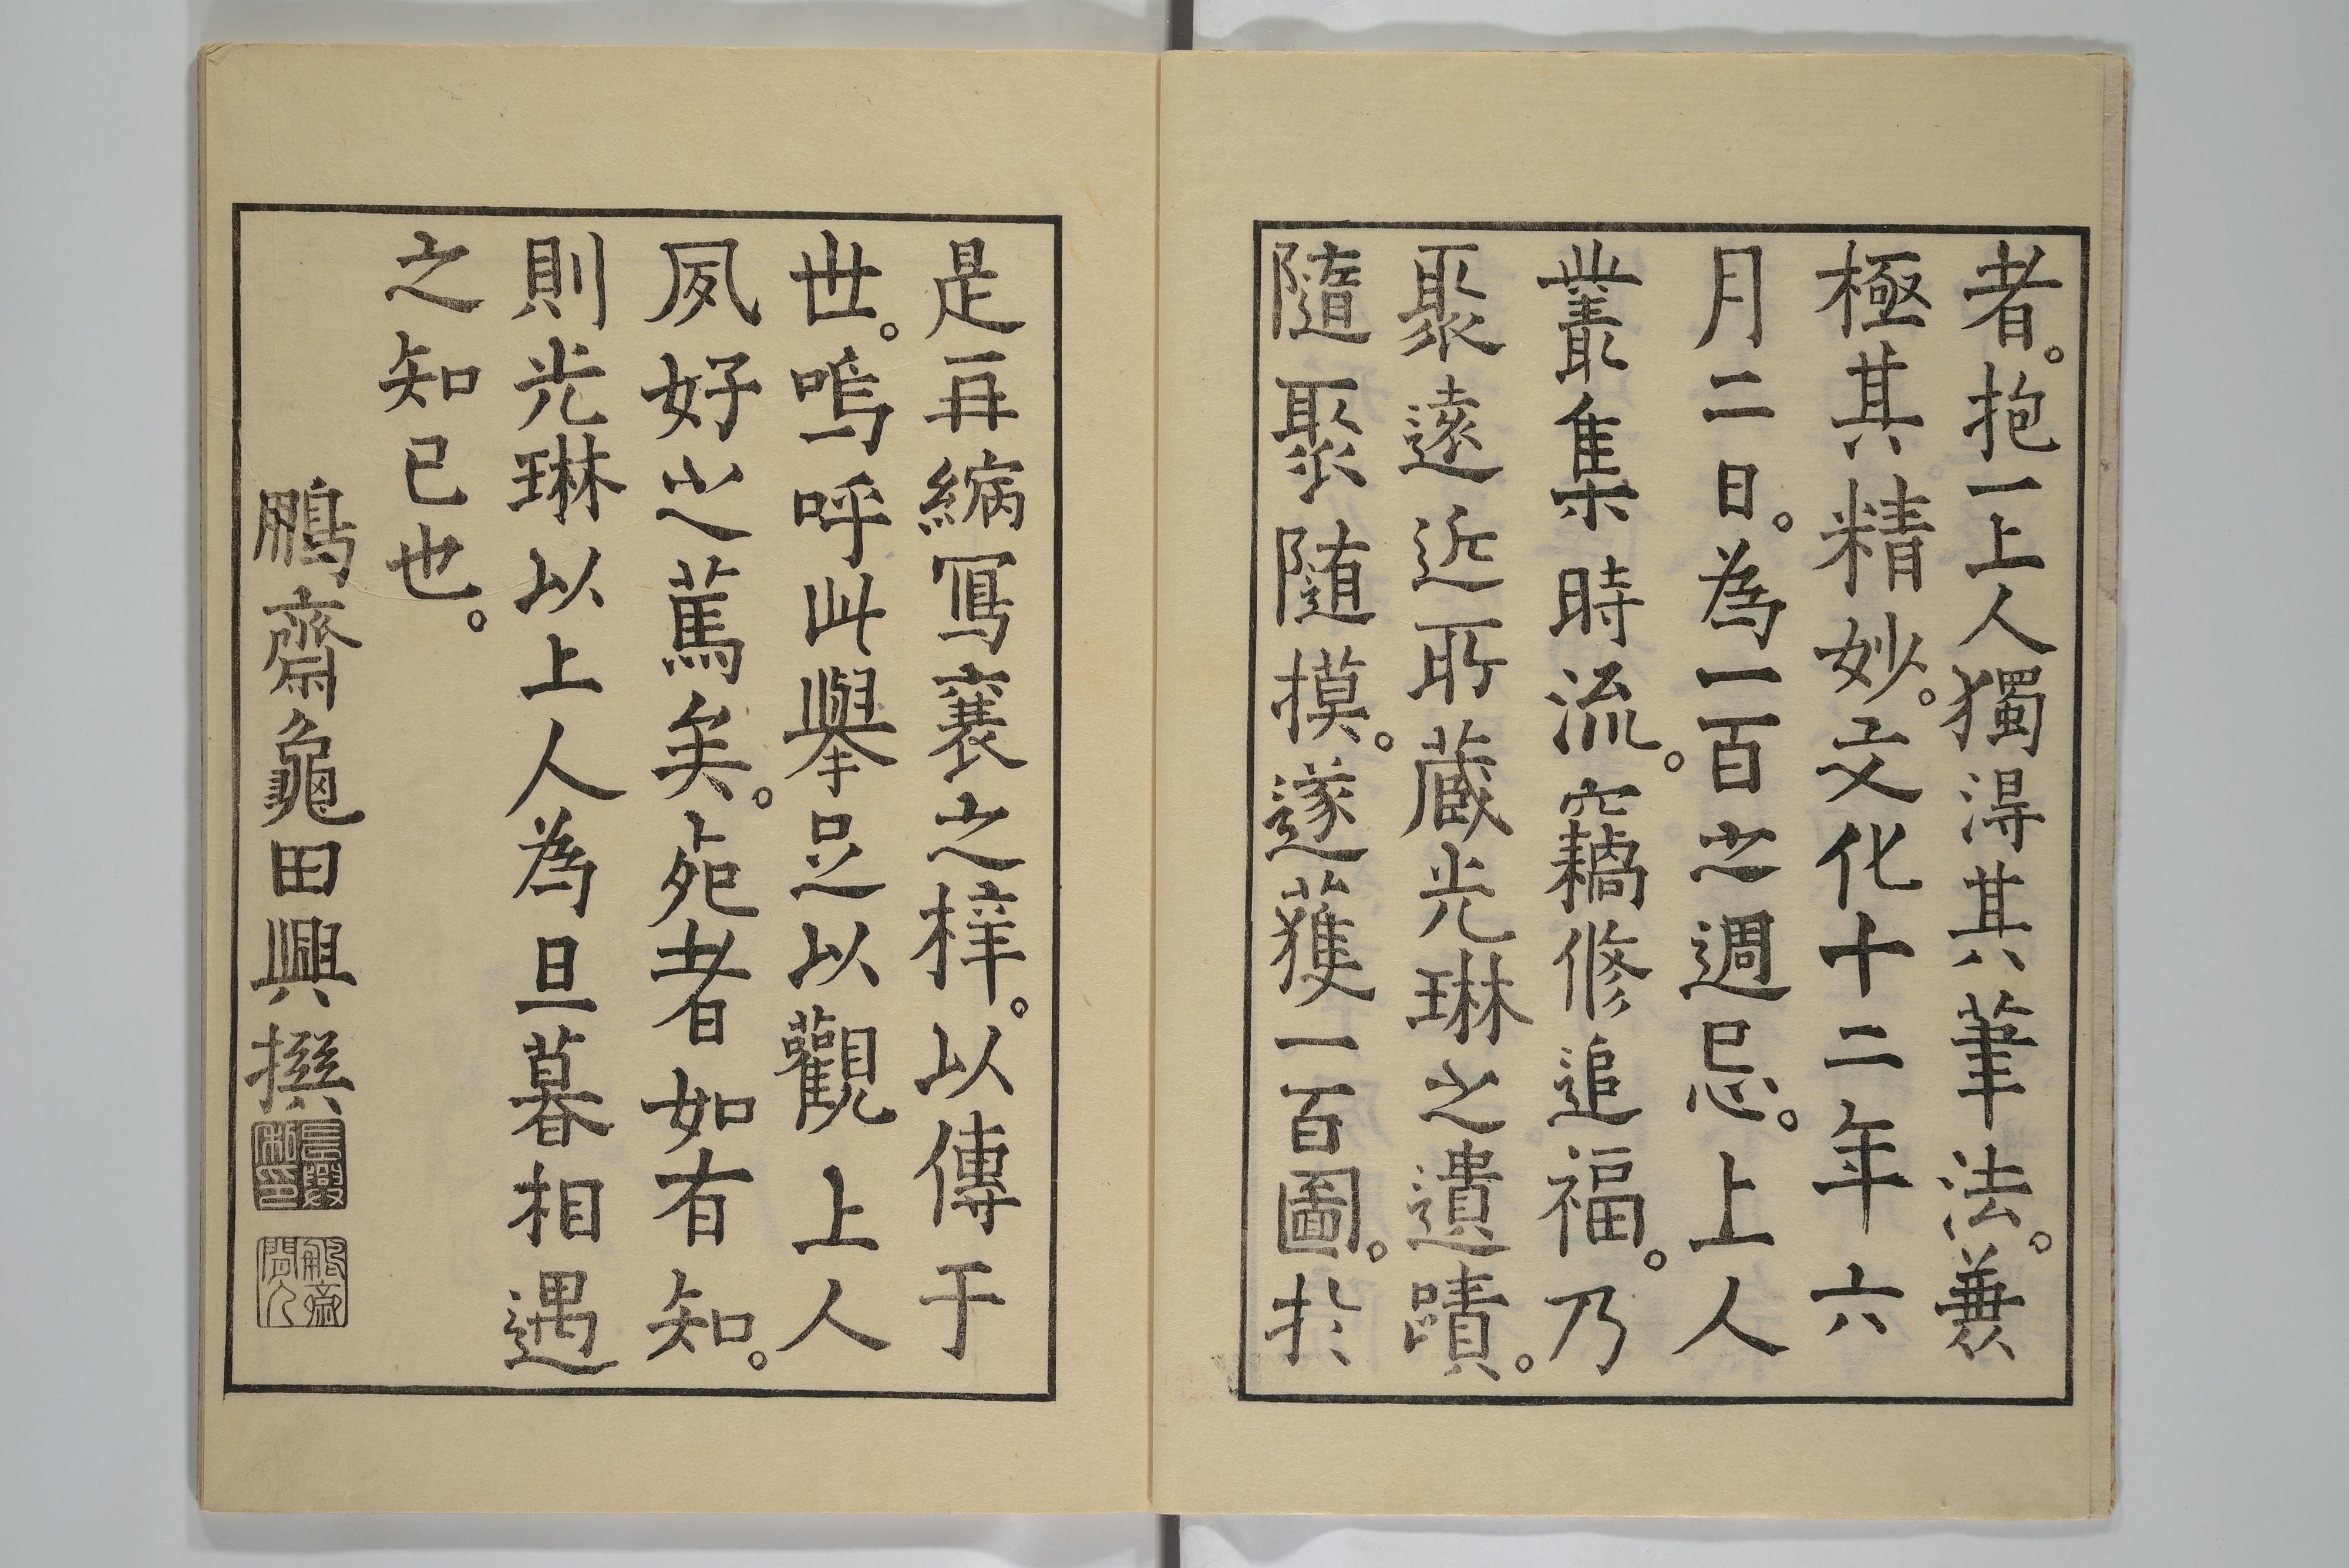 者。抱一上人獨得其筆法。兼
極其精妙。文化十二年六
月二日。為一百之週忌。上人
叢集時流。竊修追福。乃
聚遠近所蔵光琳之遺蹟。
隨聚隨摸。遂獲一百圖。於
是再縮寫褰之梓。以傳于
世。嗚呼此舉足以觀上人
夙好之篤矣。死者如有知。
則光琳以上人為旦暮相遇
之知己也。
鵬齋龜田興撰